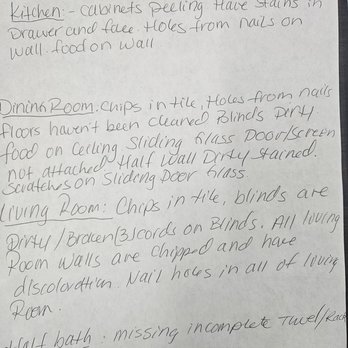 Kitchen:- Cabinets peeling Have stains in
Drawer and face. Holes from nails on
wall. food on wall
Dining Room. Chips in tile, Holes from nails
floors haven't been cleaned Blinds Dirty
food on Ceiling Sliding Glass Door/screen
not attached Half Wall Dirty Stained.
Scratches on Sliding Door Glass
Living Room: Chips in tile, blinds are
Dirty/Broken (3) cords on Blinds. All living
Room walls are chipped and have
discoloration. Nail holes in all of living
Room.
Half bath: missing incomplete Towel/Rack